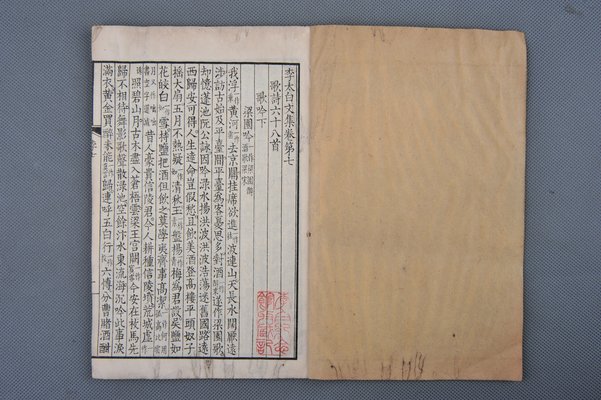 李太白文集卷第七
歌詩六十八首
歌吟下
梁園吟
我浮黃河去京闕挂席欲進波連山天長水闊厭遠
涉訪古始及平臺間平臺爲客憂思多對酒遂作梁園歌
却憶蓬池阮公詠因吟淥水揚洪波洪波浩蕩迷舊國路遠
西歸安可得人生達命豈假愁且飲美酒登高樓平頭奴子
搖大扇五月不熱疑清秋玉盤楊梅爲君設吳鹽如
花皎白雪持鹽把酒但飲之莫學夷齊事高潔
昔人豪貴信陵君今人耕種信陵墳荒城虛
照碧山月古木盡入蒼梧雲梁王宮闕今安在枚馬先
歸不相待舞影歌聲散淥池空餘汴水東流海沉吟此事淚
滿衣黃金買醉未能歸連呼五白行六博分曹賭酒酣